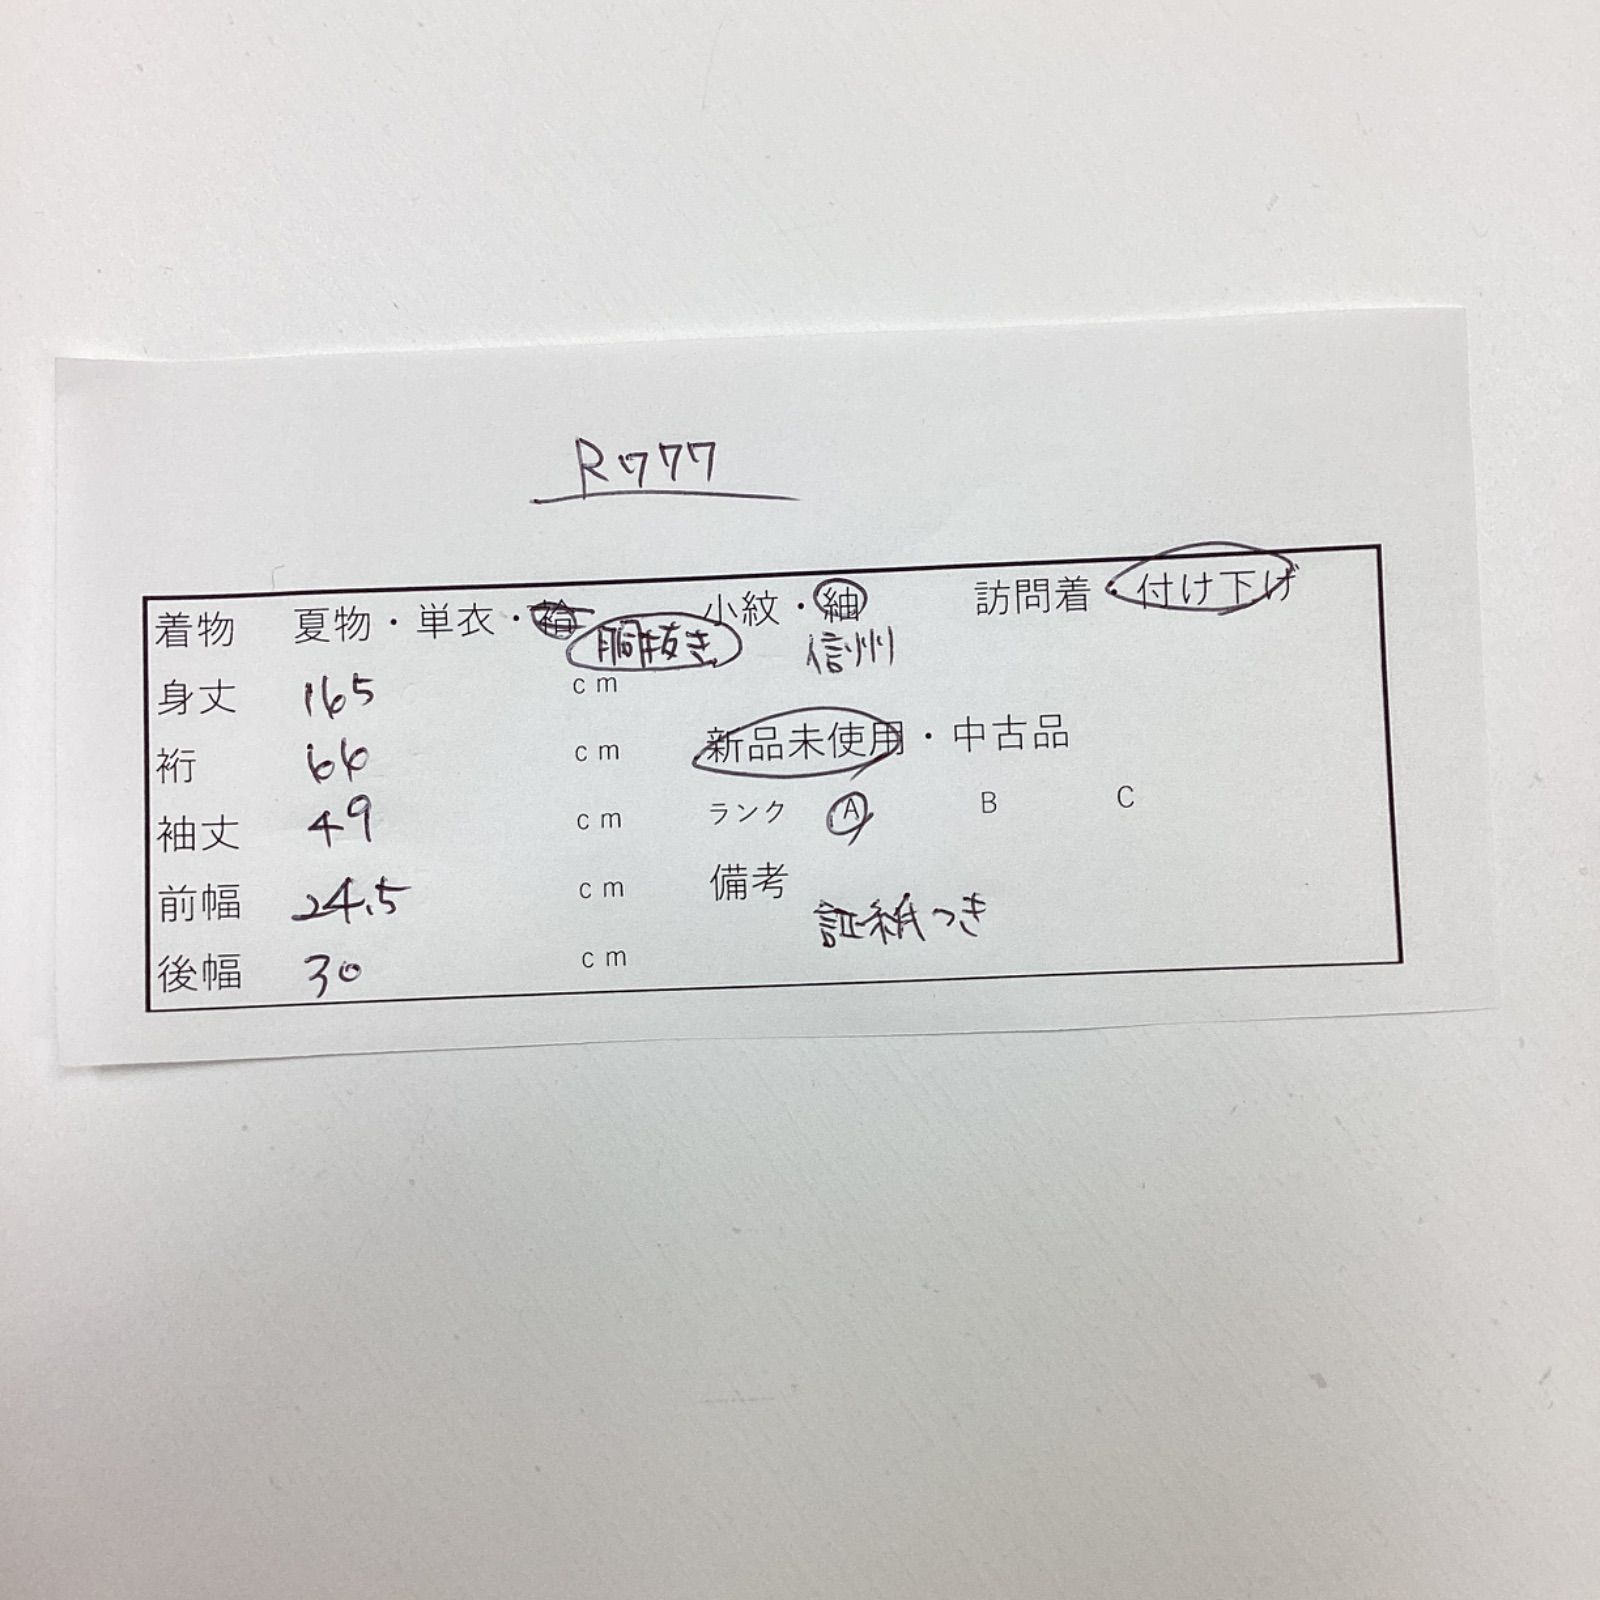 R777
着物 夏物・単衣・袷 小紋・紬 訪問着・付け下げ
胴抜き 信州
身丈 165 cm
裄 66 cm 新品未使用・中古品
袖丈 49 cm ランク A B C
前幅 24.5 cm 備考
証紙つき
後幅 30 cm